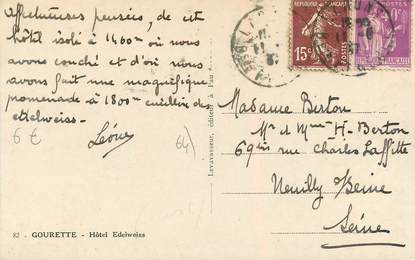 Affectueuses pensées, de cet
hôtel isolé à 1400m où nous
avons couché et d'où nous
avons fait une magnifique
promenade à 1800m cueillir des
edelweiss.
Léone
6 €
64)
82 - GOURETTE - Hôtel Edelweiss
Levavasseur, éditeur à Pau
15c
POSTES
Madame Berton
Mr et Mme H. Berton
69 bis rue Charles Laffitte
Neuilly s/ Seine
Seine